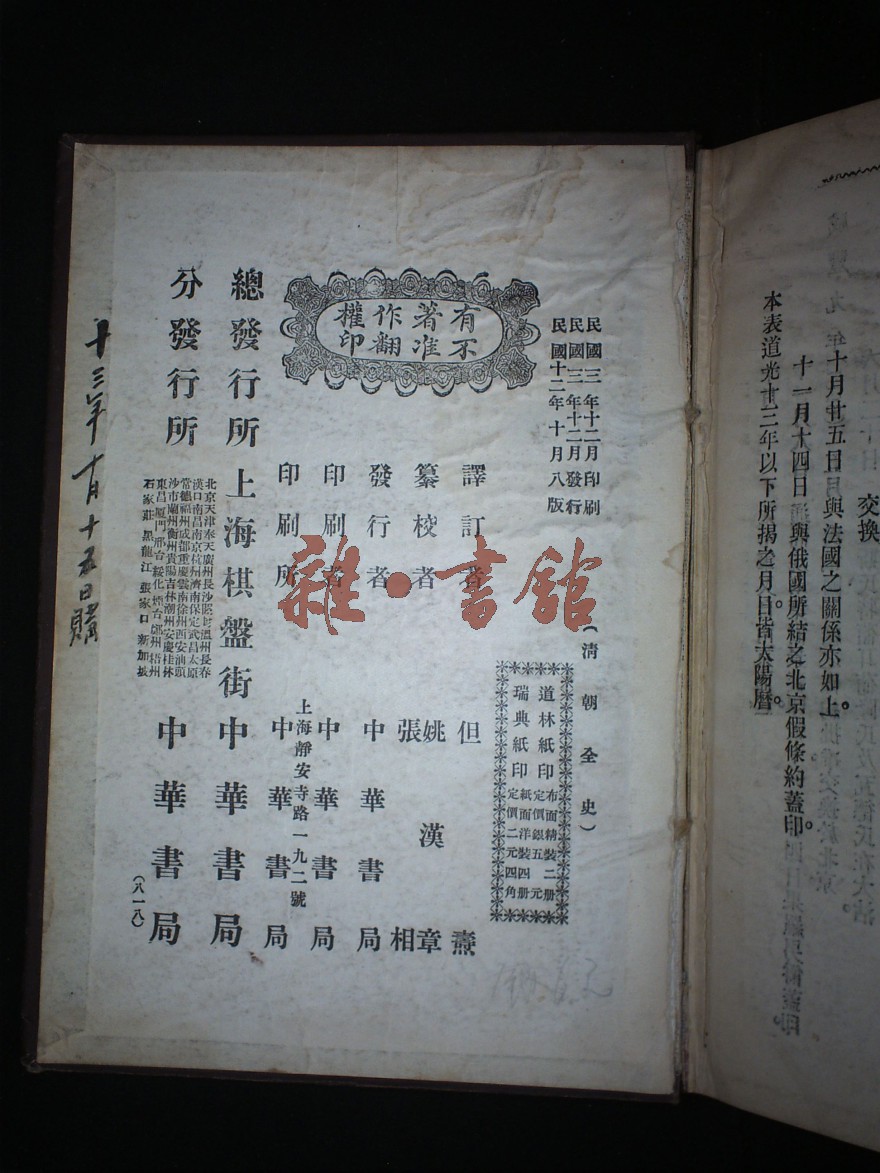 本表道光廿三年以下所揭之月日皆太陽曆。
十一月十四日與俄國所結之北京假條約蓋印。
交換
年十月廿五日與法國之關係亦如上。
民國三年十二月印刷
民國三年十二月發行
民國十二年十月八版
有著作權
不准翻印
(清朝全史)
道林紙印 布面精裝二册 定價銀五元
瑞典紙印 紙面洋裝四册 定價二元四角
譯訂者 但燾
纂校者 姚漢章 張相
發行者 中華書局
印刷者 中華書局
印刷所 上海靜安寺路一九二號 中華書局
總發行所 上海棋盤街 中華書局
分發行所 中華書局
北京天津奉天廣州長沙 溫州長春
漢口南昌南京杭州濟南保定武昌太原
常德福州成都重慶雲南徐州西安汕頭
沙市蘭州衡州貴陽吉林潮州安慶桂林
東昌廈門邢台綏化煙台 州梧州
石家莊 黑龍江 張家口 新加坡
(八一八)
十三年十月十五日購
雜·書館